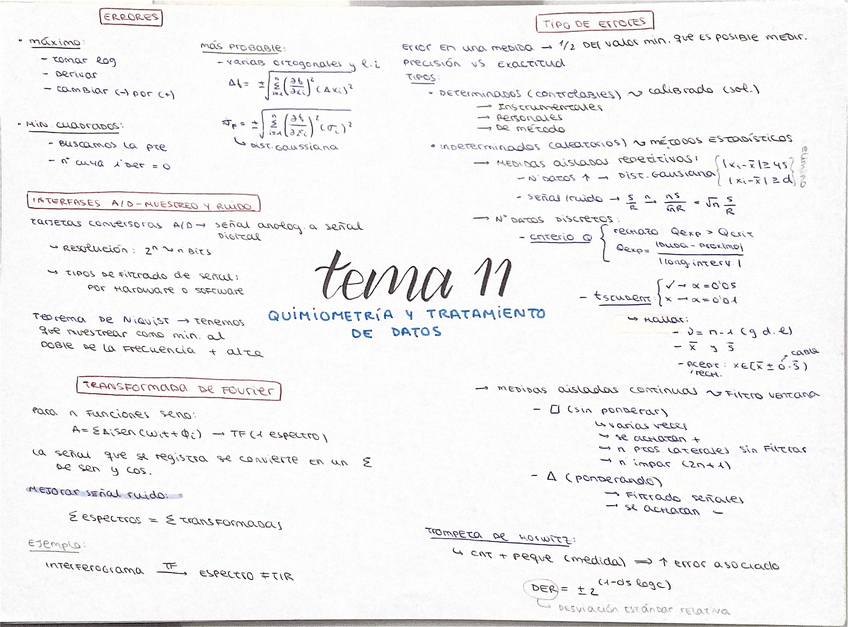 ERRORES
• máximo:
- tomar log
- derivar
- cambiar (-) por (+)
más probable:
- varias ortogonales y l.i
Δf = ±√(Σ(∂f/∂xi)²(Δxi)²)
σp = ±√(Σ(∂f/∂xi)²(σi)²)
↳ Dist. gaussiana
• Min cuadrados:
- Buscamos la pte
- nº cuya 1ª der = 0
INTERFASES A/D-MUESTREO Y RUIDO
Tarjetas conversoras A/D → señal analog. a señal
digital
↳ Resolución: 2ⁿ ~ n Bits
↳ Tipos de filtrado de señal:
por hardware o software
Teorema de Niquist → Tenemos
que muestrear como min. al
doble de la frecuencia + alta
TRANSFORMADA DE FOURIER
Para n funciones seno:
A = ΣAisen(ωit+φi) → TF (1 espectro)
La señal que se registra se convierte en un Σ
de sen y cos.
Mejorar señal ruido:
Σ espectros = Σ transformadas
Ejemplo:
interferograma —TF→ espectro FTIR
tema 11
QUIMIOMETRÍA Y TRATAMIENTO
DE DATOS
TIPO DE ERRORES
Error en una medida → 1/2 del valor min. que es posible medir.
Precisión vs exactitud
Tipos:
• Determinados (controlables) ~ calibrado (sol.)
→ Instrumentales
→ Personales
→ De método
• Indeterminados (aleatorios) ~ métodos estadísticos
→ Medidas aisladas repetitivas:
- Nº datos ↑ → Dist. gaussiana { |xi-x̄| ≥ 4s
|xi-x̄| ≥ d
elimino
- Señal/ruido → S/R → nS/√nR = √n S/R
→ Nº datos discretos:
- criterio Q { rechazo Qexp > Qcrit
Qexp = |duda - proximo| / |long.interv.|
- t student: { ✓ → α = 0'05
x → α = 0'01
↳ Hallar:
- ν = n-1 (g.d.l)
- x̄ y s̄
- Acept: x∈(x̄ ± Q·s̄)
rech.
tabla
→ Medidas aisladas continuas ~ Filtro ventana
- □ (sin ponderar)
↳ varias veces
→ se achatan +
→ n ptos laterales sin filtrar
→ n impar (2n+1)
- Δ (ponderando)
→ Filtrado señales
→ se achatan -
Trompeta de Horwitz:
↳ cnt + peque (medida) ⇒ ↑ error asociado
DER = ±2^(1-0'5 logc)
↳ Desviación estándar relativa